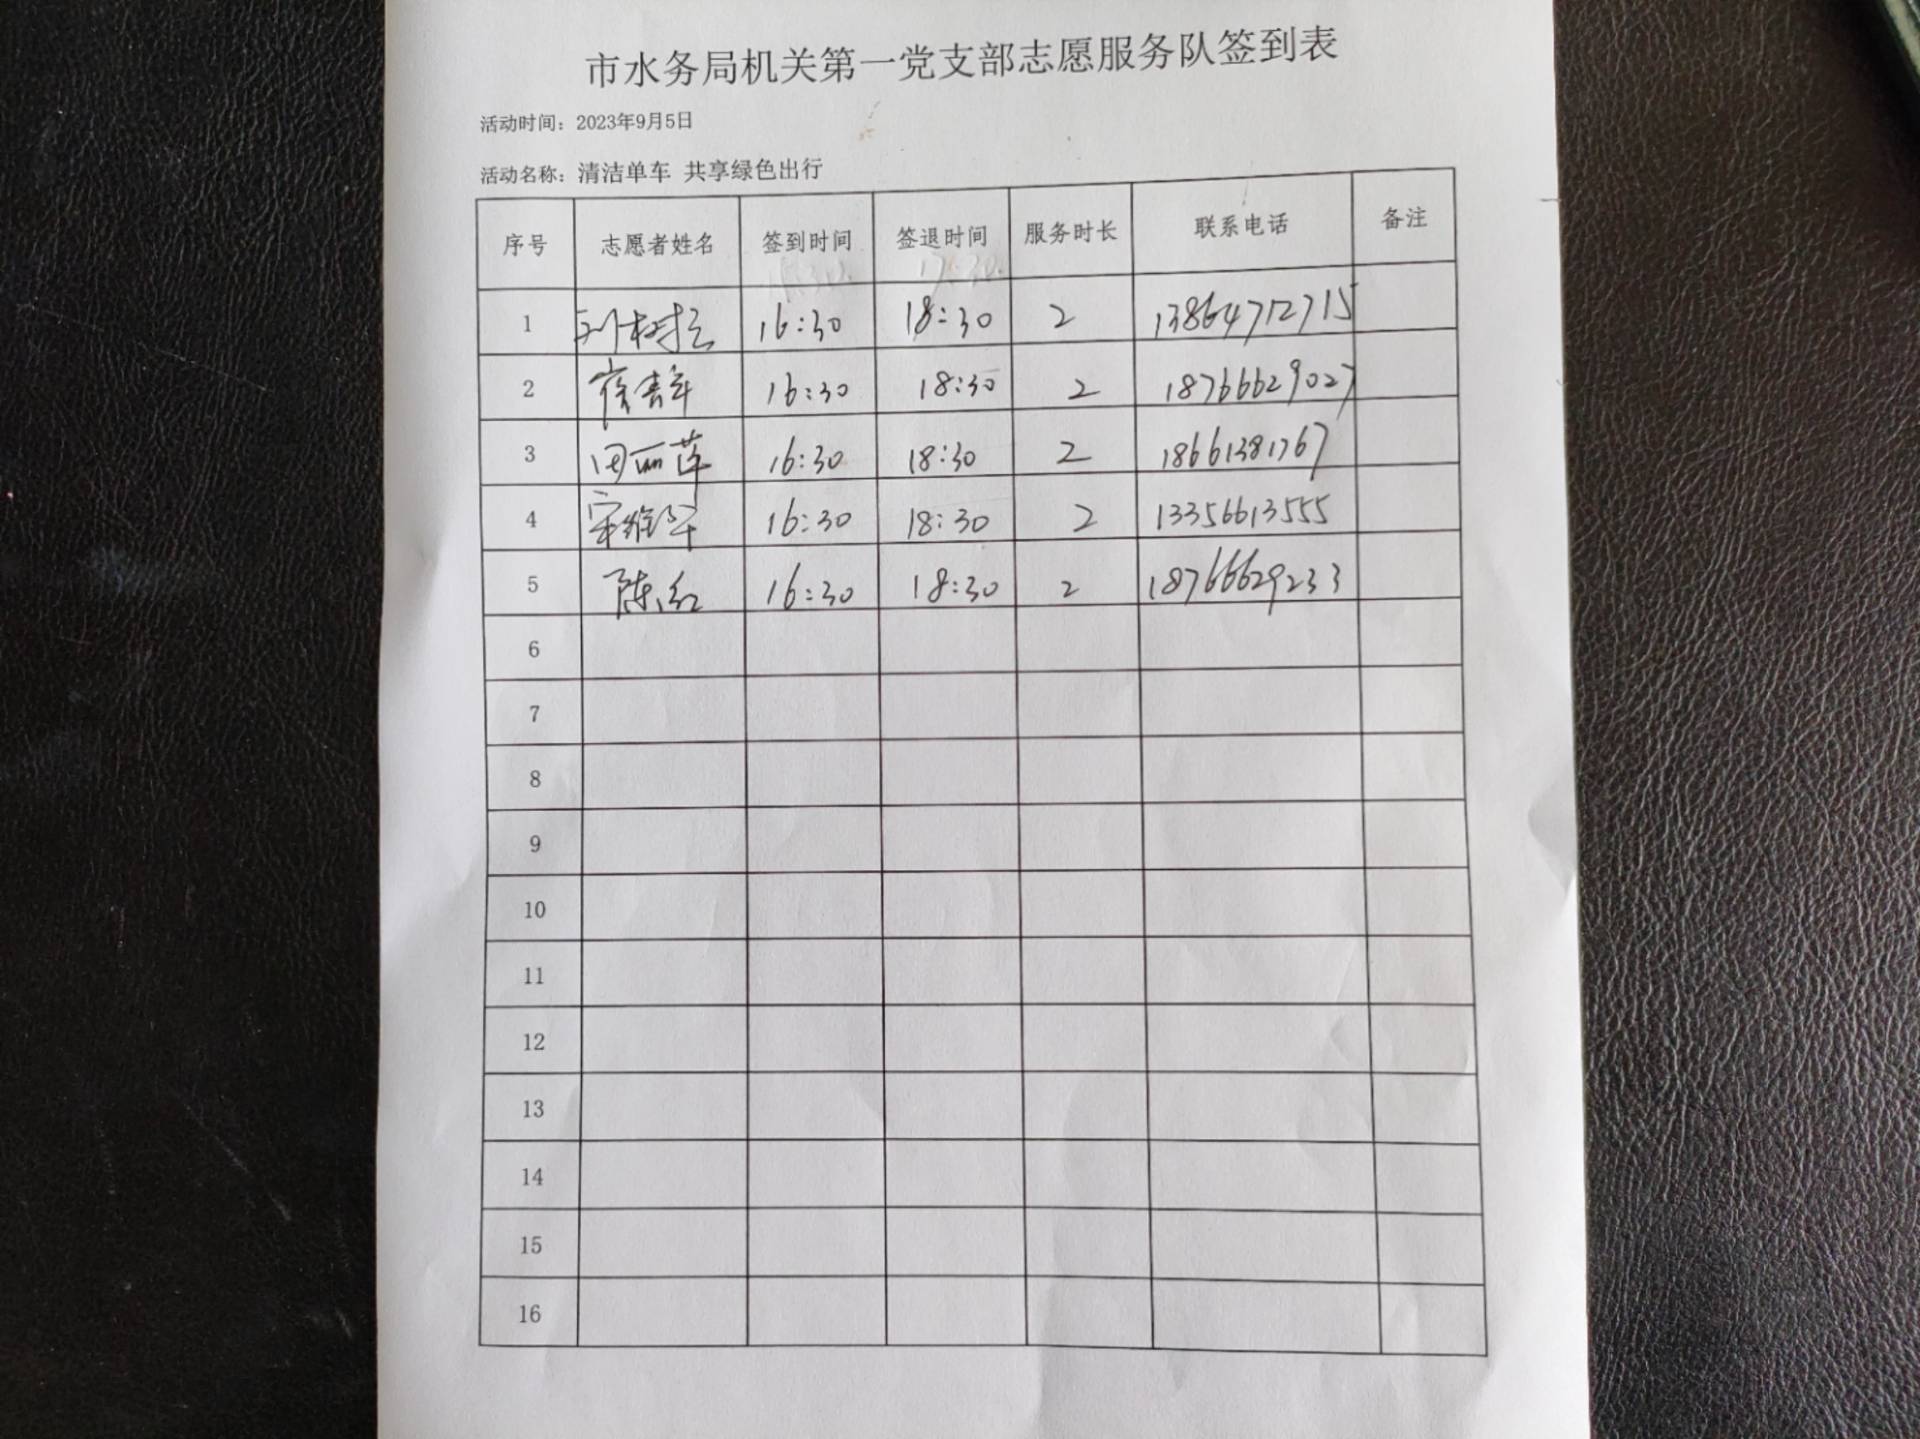 市水务局机关第一党支部志愿服务队签到表
活动时间：2023年9月5日
活动名称：清洁单车 共享绿色出行
序号 志愿者姓名 签到时间 签退时间 服务时长 联系电话 备注
1 16:30 18:30 2 13864712715
2 16:30 18:30 2 18766629027
3 田丽萍 16:30 18:30 2 18661381767
4 16:30 18:30 2 13356613555
5 陈红 16:30 18:30 2 18766629233
6
7
8
9
10
11
12
13
14
15
16